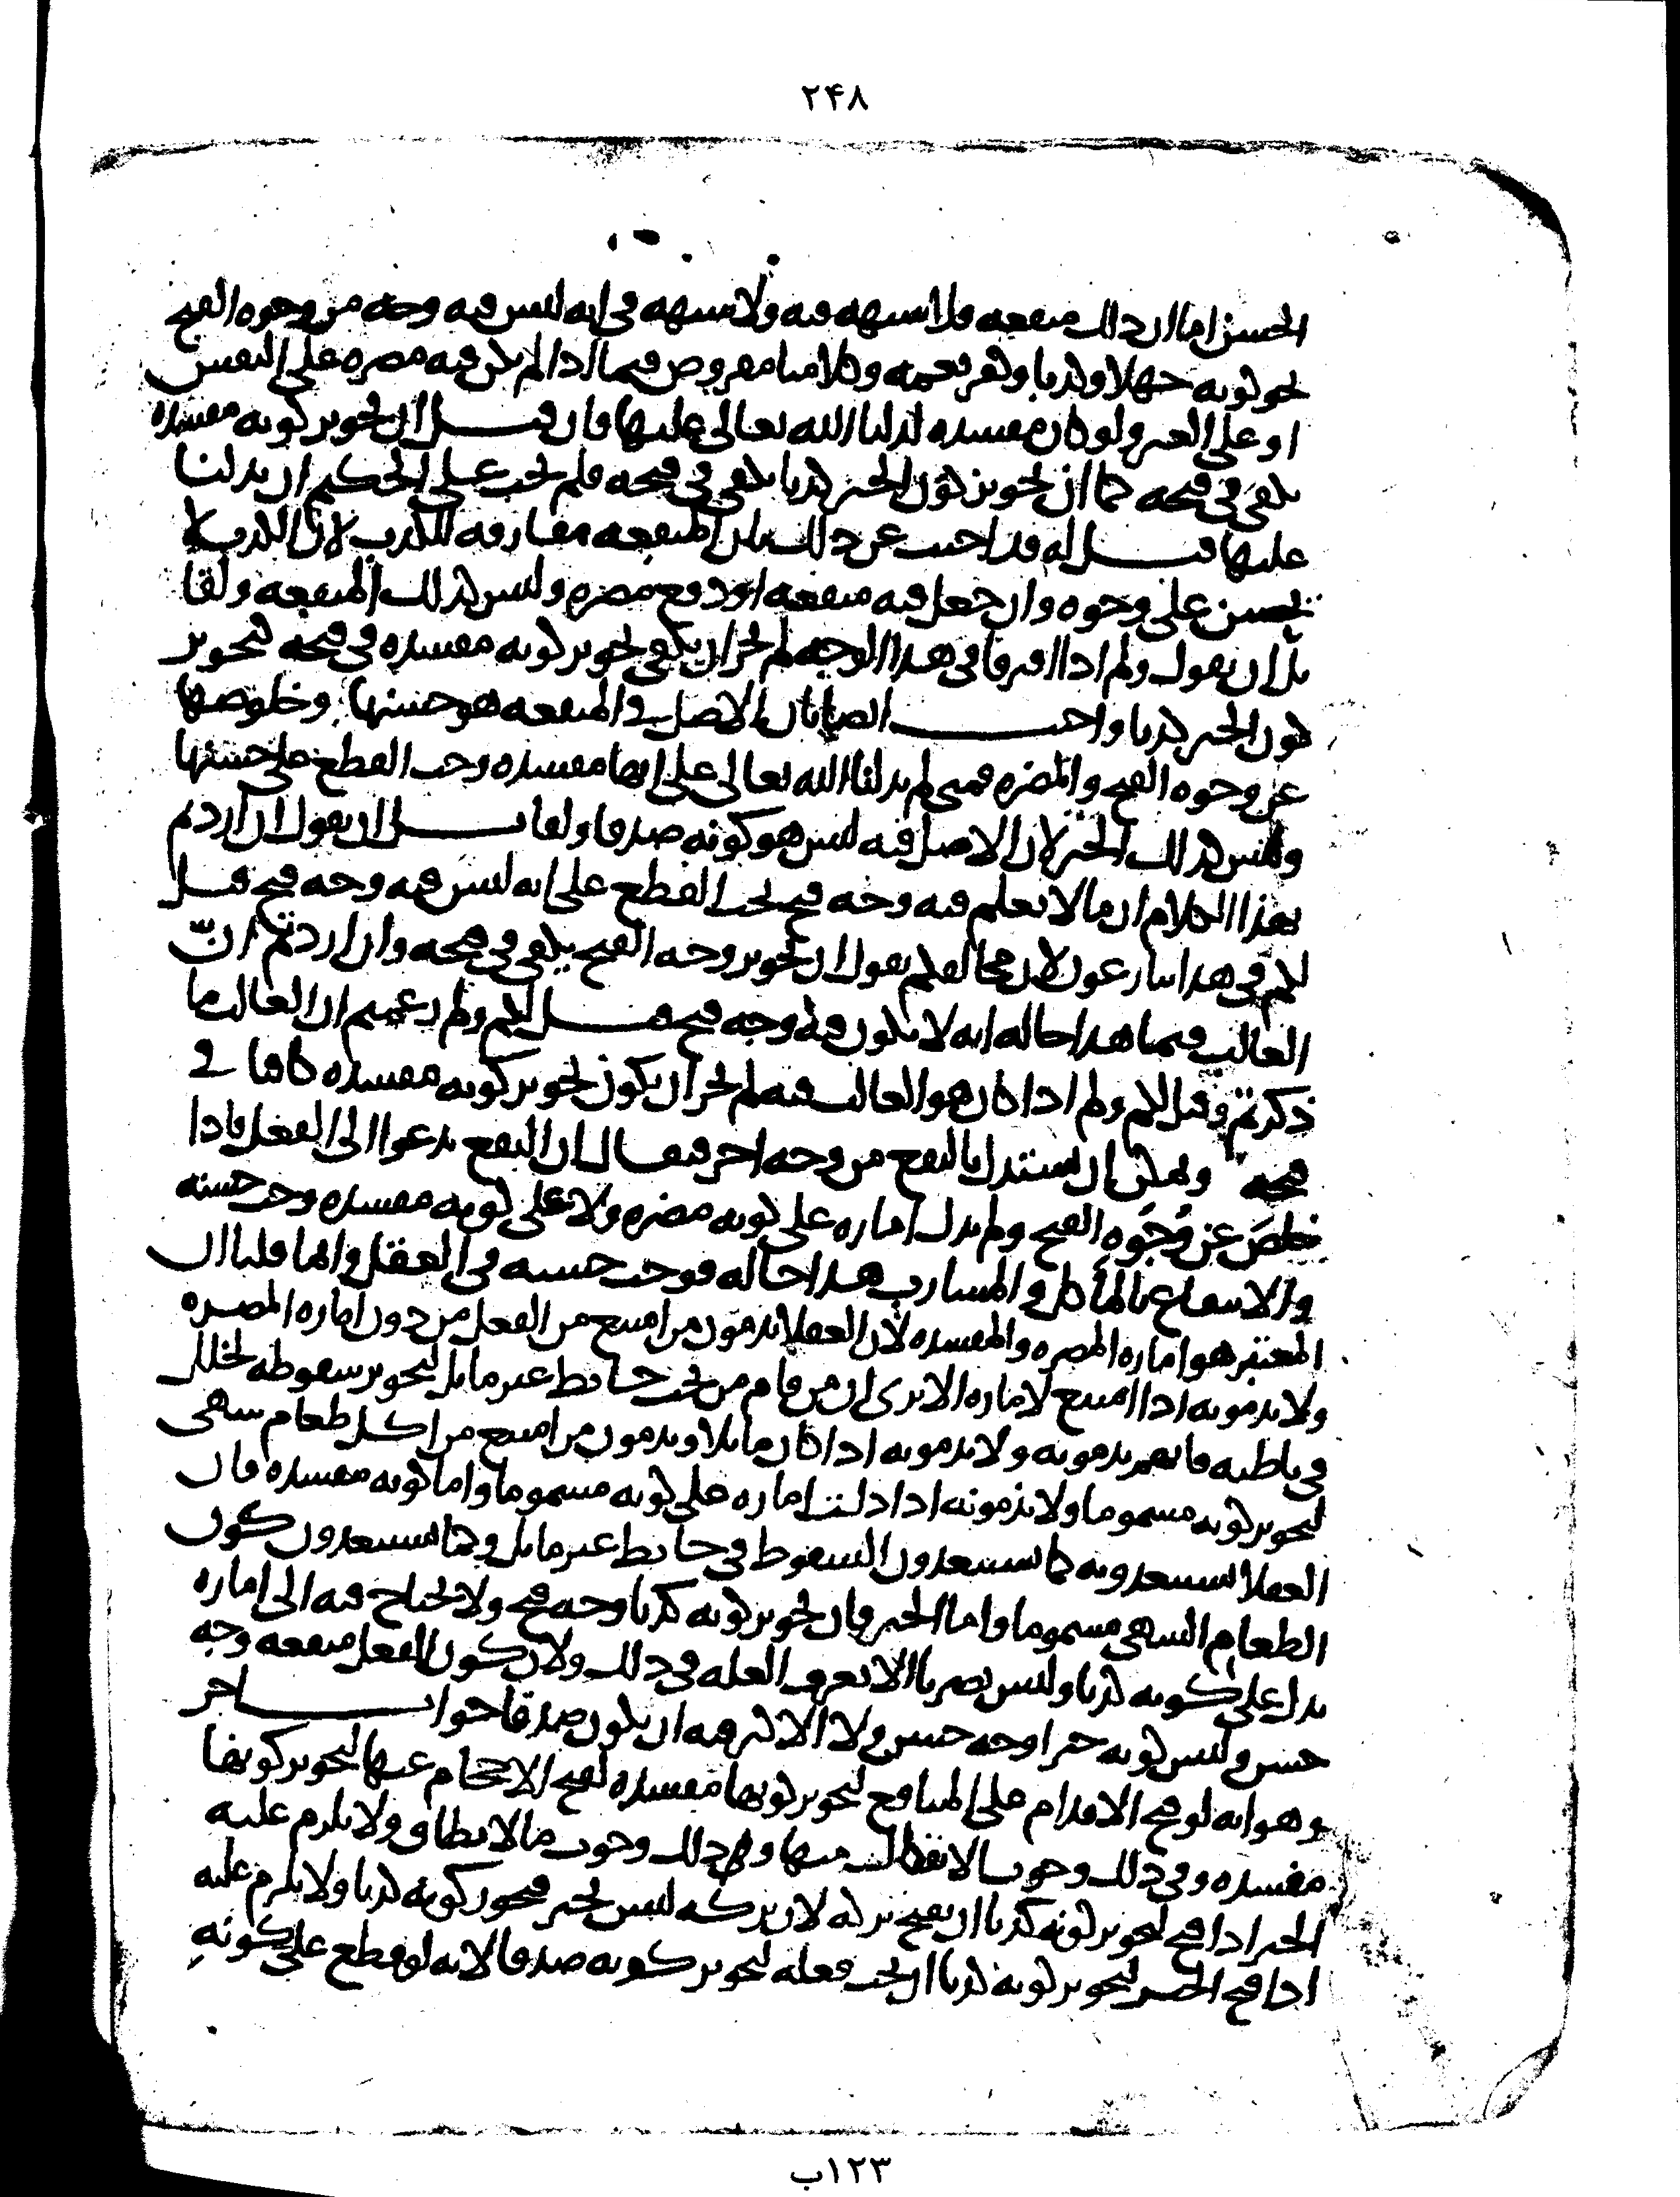 ٢۴٨
الحسن اما ان ذلك منفعه فلا شبهه فيه ولا شبهه في انه ليس فيه وجه من وجوه القبح
نحو كونه جهلا وكذبا وكفر نعمه وكلامنا مفروض فيما اذا لم يكن فيه مضره على النفس
او على الغير ولو كان مفسده لدلنا الله تعالى عليها فان قيل ان تجويز كونه مفسده
يكفي في قبحه كما ان تجويز كون الخبر كذبا يكفي في قبحه فلم يجب على الحكيم ان يدلنا
عليها قيل له قد اجيب عن ذلك بان المنفعه مفارقه للكذب لان الكذب لا
يحسن على وجوه وان جعل فيه منفعه او دفع مضره وليس كذلك المنفعه ولقا
ئل ان يقول ولم اذا افترقا في هذا الوجه لم يجز ان يكفي تجويز كونه مفسده في قبحه كتجويز
كون الخبر كذبا واجيب ايضا بان الاصل في المنفعه هو حسنها وخلوصها
عن وجوه القبح والمضره فمتى لم يدلنا الله تعالى على انها مفسده وجب القطع على حسنها
وليس كذلك الخبر لان الاصل فيه ليس هو كونه صدقا ولقائل ان يقول ان اردتم
بهذا الكلام ان ما لا نعلم فيه وجه قبح يجب القطع على انه ليس فيه وجه قبح قيل
لكم في هذا تنازعون لان مخالفكم يقول ان تجويز وجه القبح يكفي في قبحه وان اردتم ان
الغالب فيما هذا حاله انه لا يكون فيه وجه قبح قيل لكم ولم زعمتم ان الغالب ما
ذكرتم وقيل لكم ولم اذا كان هو الغالب فيه لم يجز ان يكون تجويز كونه مفسده كافيا في
قبحه ويمكن ان نستدل بالنفع من وجه اخر فيقال ان النفع يدعوا الى الفعل فاذا
خلص عن وجوه القبح ولم يدل اماره على كونه مضره ولا على كونه مفسده وجب حسنه
والانتفاع بالمأكل والمشارب هذا حاله فوجب حسنه في العقل وانما قلنا ان
المعتبر هو اماره المضره والمفسده لان العقلا يذمون من امتنع من الفعل من دون اماره المضره
ولا يذمونه اذا امتنع لاماره الا ترى ان من قام من تحت حائط غير مائل لتجويز سقوطه لخلل
في باطنه فانهم يذمونه ولا يذمونه اذا كان مائلا ويذمون من امتنع من اكل طعام شهي
لتجويز كونه مسموما ولا يذمونه اذا دلت اماره على كونه مسموما واما كونه مفسده فان
العقلا يستبعدونه كما يستبعدون السقوط في حائط غير مائل وكما يستبعدون كون
الطعام الشهي مسموما واما الخبر فان تجويز كونه كذبا وجه قبح ولا يحتاج فيه الى اماره
يدل على كونه كذبا وليس يضرنا الا نعرف العله في ذلك ولان كون الفعل منفعه وجه
حسن وليس كونه خبرا وجه حسن ولا الاكثر فيه ان يكون صدقا جواب اخر
وهو انه لو قبح الاقدام على المنافع لتجويز كونها مفسده لقبح الاحجام عنها لتجويز كونها
مفسده وفي ذلك وجوب الانفكاك منها وفي ذلك وجوب ما لا يطاق ولا يلزم عليه
الخبر اذا قبح لتجويز كونه كذبا ان يقبح تركه لان تركه ليس بخبر فيجوز كونه كذبا ولا يلزم عليه
اذا قبح الخبر لتجويز كونه كذبا ان يجب فعله لتجويز كونه صدقا لانه لو قطع على كونه
١٢٣ب